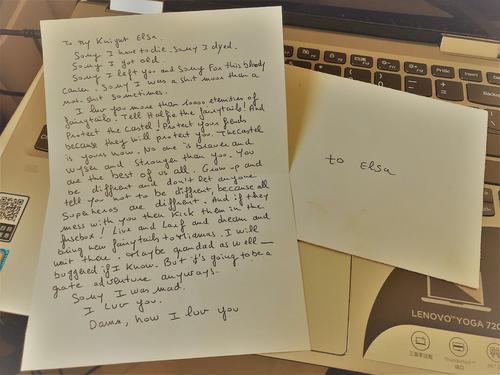 To my Knight Elsa.
Sorry I have to die. Sorry I dyed.
Sorry I got old.
Sorry I left you and sorry for this bloody
cancer. Sorry I was a shit more than a
not-shit sometimes.
I luv you more than 10000 eternities of
fairytails! Tell Halfie the fairytails! And
Protect the Castel! Protect your frends
because they will protect you. The castel
is yours now. No one is braver and
wyser and stronger than you. You
are the best of us all. Grow up and
be different and don't let anyone
tell you not to be diffrent, because all
Superheros are different. And if they
mess with you then kick them in the
fusebox! Live and Larf and dream and
bring new fairytails to Miamas. I will
wait there. Maybe grandad as well—
buggered if I know. But it's going to be a
grate adventure anyways.
Sorry I was mad.
I luv you.
Damn, how I luv you
to Elsa
LENOVO™ YOGA 720
Thunderbolt™